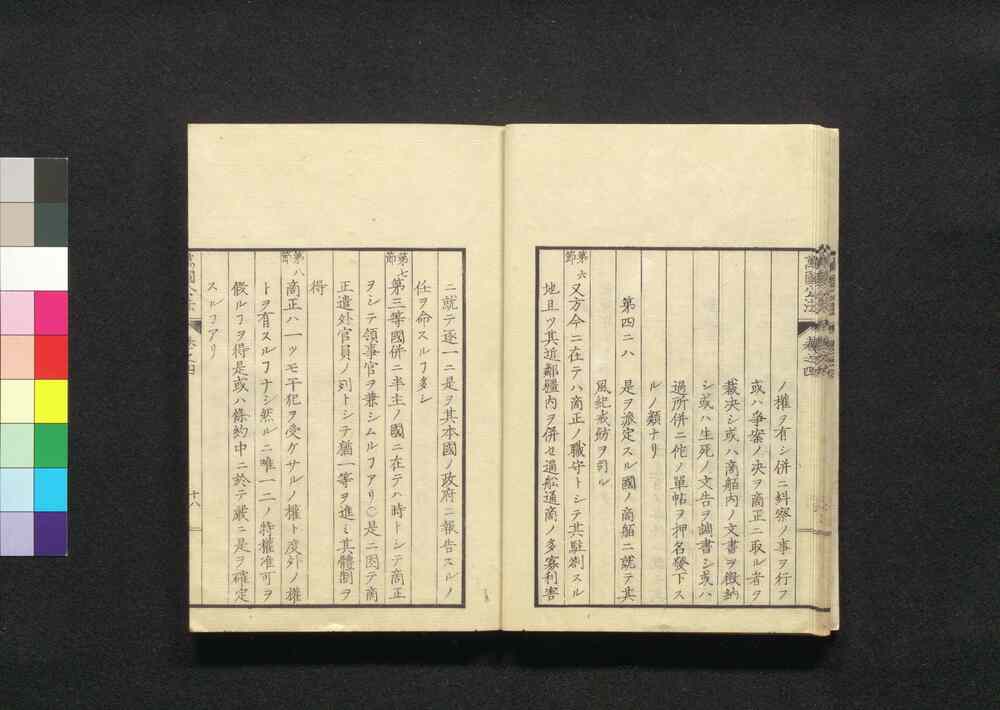 萬國公法
卷之四
ノ權ヲ有シ併ニ糾察ノ事ヲ行フ
或ハ爭案ノ决ヲ商正ニ取ル者ヲ
裁决シ或ハ商舶內ノ文書ヲ徴納
シ或ハ生死ノ文告ヲ調書シ或ハ
過所併ニ他ノ單帖ヲ押名發下ス
ルノ類ナリ
第四ニハ 是ヲ派定スル國ノ商舶ニ就テ其
風紀戒飭ヲ司ル
第六節 又方今ニ在テハ商正ノ職守トシテ其駐劄スル
地且ツ其近鄰疆內ヲ併セ過舩通商ノ多寡利害
ニ就テ逐一ニ是ヲ其本國ノ政府ニ報告スルノ
任ヲ命スルヿ多シ
第七節 第三等國併ニ半主ノ國ニ在テハ時トシテ商正
ヲシテ領事官ヲ兼シムルヿアリ○是ニ因テ商
正遣外官員ノ列トシテ猶一等ヲ進ミ其體制ヲ
得
第八節 商正ハ一ツモ干犯ヲ受ケサルノ權ト度外ノ權
トヲ有スルヿナシ然ルニ唯一二ノ特權准可ヲ
假ルヿヲ得是或ハ條約中ニ於テ嚴ニ是ヲ確定
スルヿアリ
十八